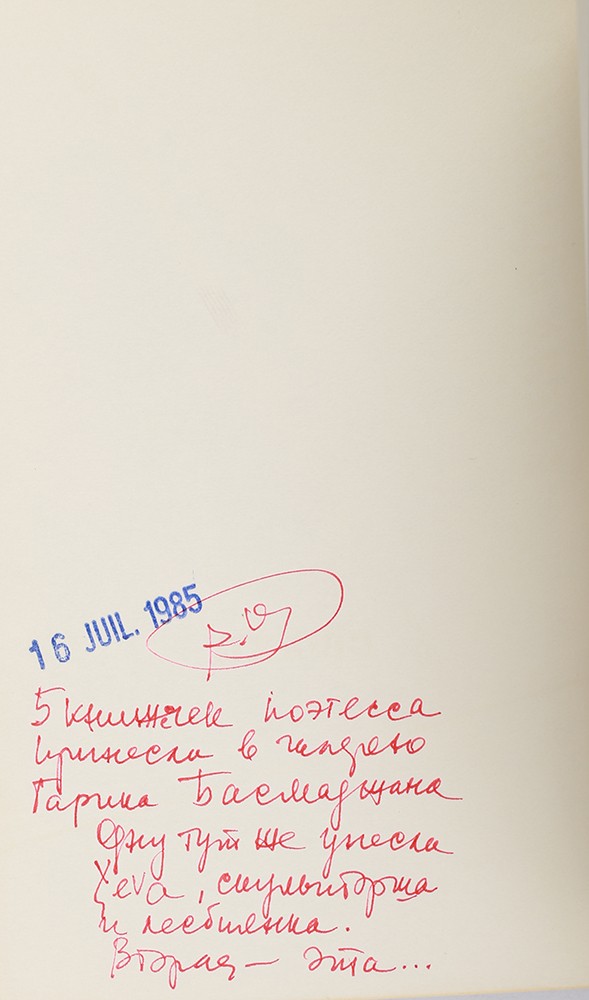 16 JUIL. 1985
5 книжчек поэтесса
принесла в галерею
Гарика Басмаджана
Одну тут же унесла
eva, скульпторша
и лесбиянка.
Вторая — эта...